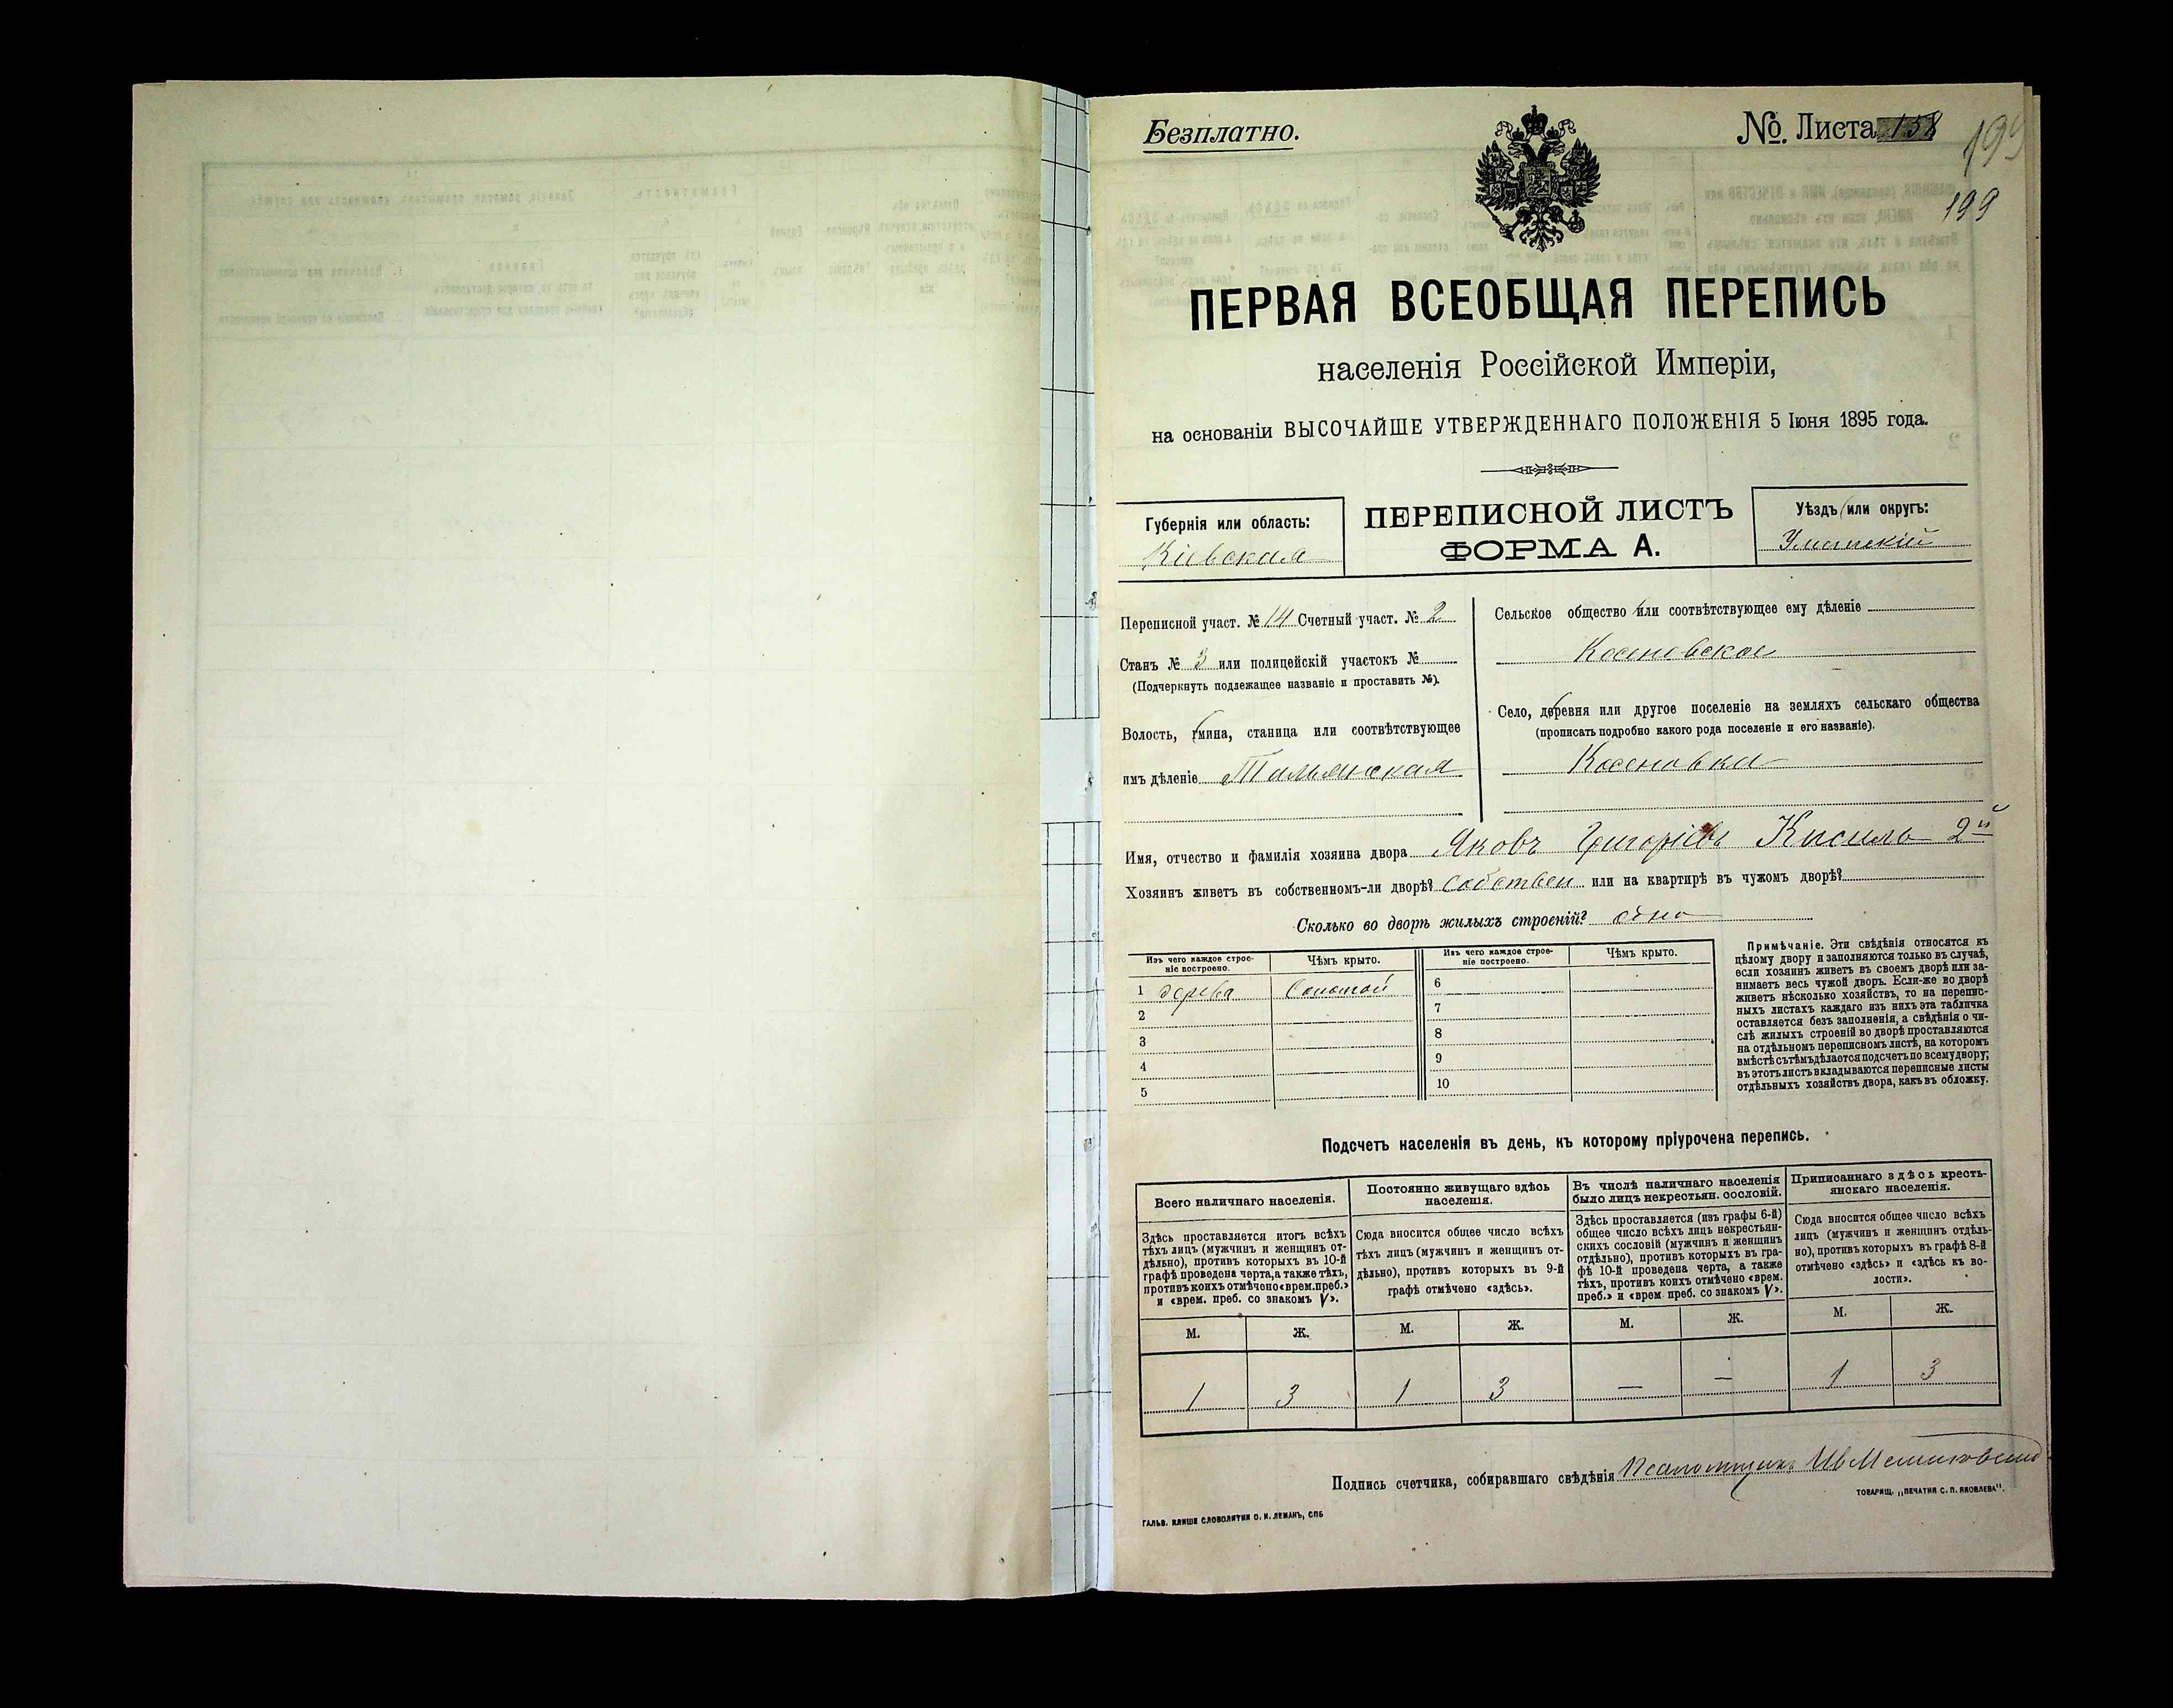 Безплатно.
№. Листа 158
199
199
ПЕРВАЯ ВСЕОБЩАЯ ПЕРЕПИСЬ
населенія Россійской Имперіи,
на основаніи ВЫСОЧАЙШЕ УТВЕРЖДЕННАГО ПОЛОЖЕНІЯ 5 Іюня 1895 года.
Губернія или область:
Кіевская
ПЕРЕПИСНОЙ ЛИСТЪ
ФОРМА А.
Уѣздъ или округъ:
Уманскій
Переписной участ. № 14 Счетный участ. № 2
Станъ № 3 или полицейскій участокъ №
(Подчеркнуть подлежащее названіе и проставить №).
Волость, гмина, станица или соотвѣтствующее
имъ дѣленіе Тальянская
Сельское общество или соотвѣтствующее ему дѣленіе
Косеновское
Село, деревня или другое поселеніе на земляхъ сельскаго общества
(прописать подробно какого рода поселеніе и его названіе).
Косеновка
Имя, отчество и фамилія хозяина двора Яковъ Григоріевъ Кисиль 2й
Хозяинъ живетъ въ собственномъ-ли дворѣ? Собствен или на квартирѣ въ чужомъ дворѣ?
Сколько во дворѣ жилыхъ строеній? одно
Изъ чего каждое строе-
ніе построено.
Чѣмъ крыто.
Изъ чего каждое строе-
ніе построено.
Чѣмъ крыто.
1 дерева Соломой 6
2 7
3 8
4 9
5 10
Примѣчаніе. Эти свѣдѣнія относятся къ
цѣлому двору и заполняются только въ случаѣ,
если хозяинъ живетъ въ своемъ дворѣ или за-
нимаетъ весь чужой дворъ. Если-же во дворѣ
живетъ нѣсколько хозяйствъ, то на перепис-
ныхъ листахъ каждаго изъ нихъ эта табличка
оставляется безъ заполненія, а свѣдѣнія о чи-
слѣ жилыхъ строеній во дворѣ проставляются
на отдѣльномъ переписномъ листѣ, на которомъ
вмѣстѣ съ тѣмъ дѣлается подсчетъ по всему двору;
въ этотъ листъ вкладываются переписные листы
отдѣльныхъ хозяйствъ двора, какъ въ обложку.
Подсчетъ населенія въ день, къ которому пріурочена перепись.
Всего наличнаго населенія.
Здѣсь проставляется итогъ всѣхъ
тѣхъ лицъ (мужчинъ и женщинъ от-
дѣльно), противъ которыхъ въ 10-й
графѣ проведена черта, а также тѣхъ,
противъ коихъ отмѣчено «врем. преб.»
и «врем. преб. со знакомъ V».
Постоянно живущаго здѣсь
населенія.
Сюда вносится общее число всѣхъ
тѣхъ лицъ (мужчинъ и женщинъ от-
дѣльно), противъ которыхъ въ 9-й
графѣ отмѣчено «здѣсь».
Въ числѣ наличнаго населенія
было лицъ некрестьян. сословій.
Здѣсь проставляется (изъ графы 6-й)
общее число всѣхъ лицъ некрестьян-
скихъ сословій (мужчинъ и женщинъ
отдѣльно), противъ которыхъ въ гра-
фѣ 10-й проведена черта, а также
тѣхъ, противъ коихъ отмѣчено «врем.
преб.» и «врем. преб. со знакомъ V».
Приписаннаго здѣсь кресть-
янскаго населенія.
Сюда вносится общее число всѣхъ
лицъ (мужчинъ и женщинъ отдѣль-
но), противъ которыхъ въ графѣ 8-й
отмѣчено «здѣсь» и «здѣсь къ во-
лости».
М. Ж. М. Ж. М. Ж. М. Ж.
1 3 1 3 — — 1 3
Подпись счетчика, собиравшаго свѣдѣнія Псаломщикъ Ив
ТОВАРИЩ. „ПЕЧАТНЯ С. П. ЯКОВЛЕВА".
ГАЛЬВ. КЛИШЕ СЛОВОЛИТНИ О. И. ЛЕМАНЪ, СПБ